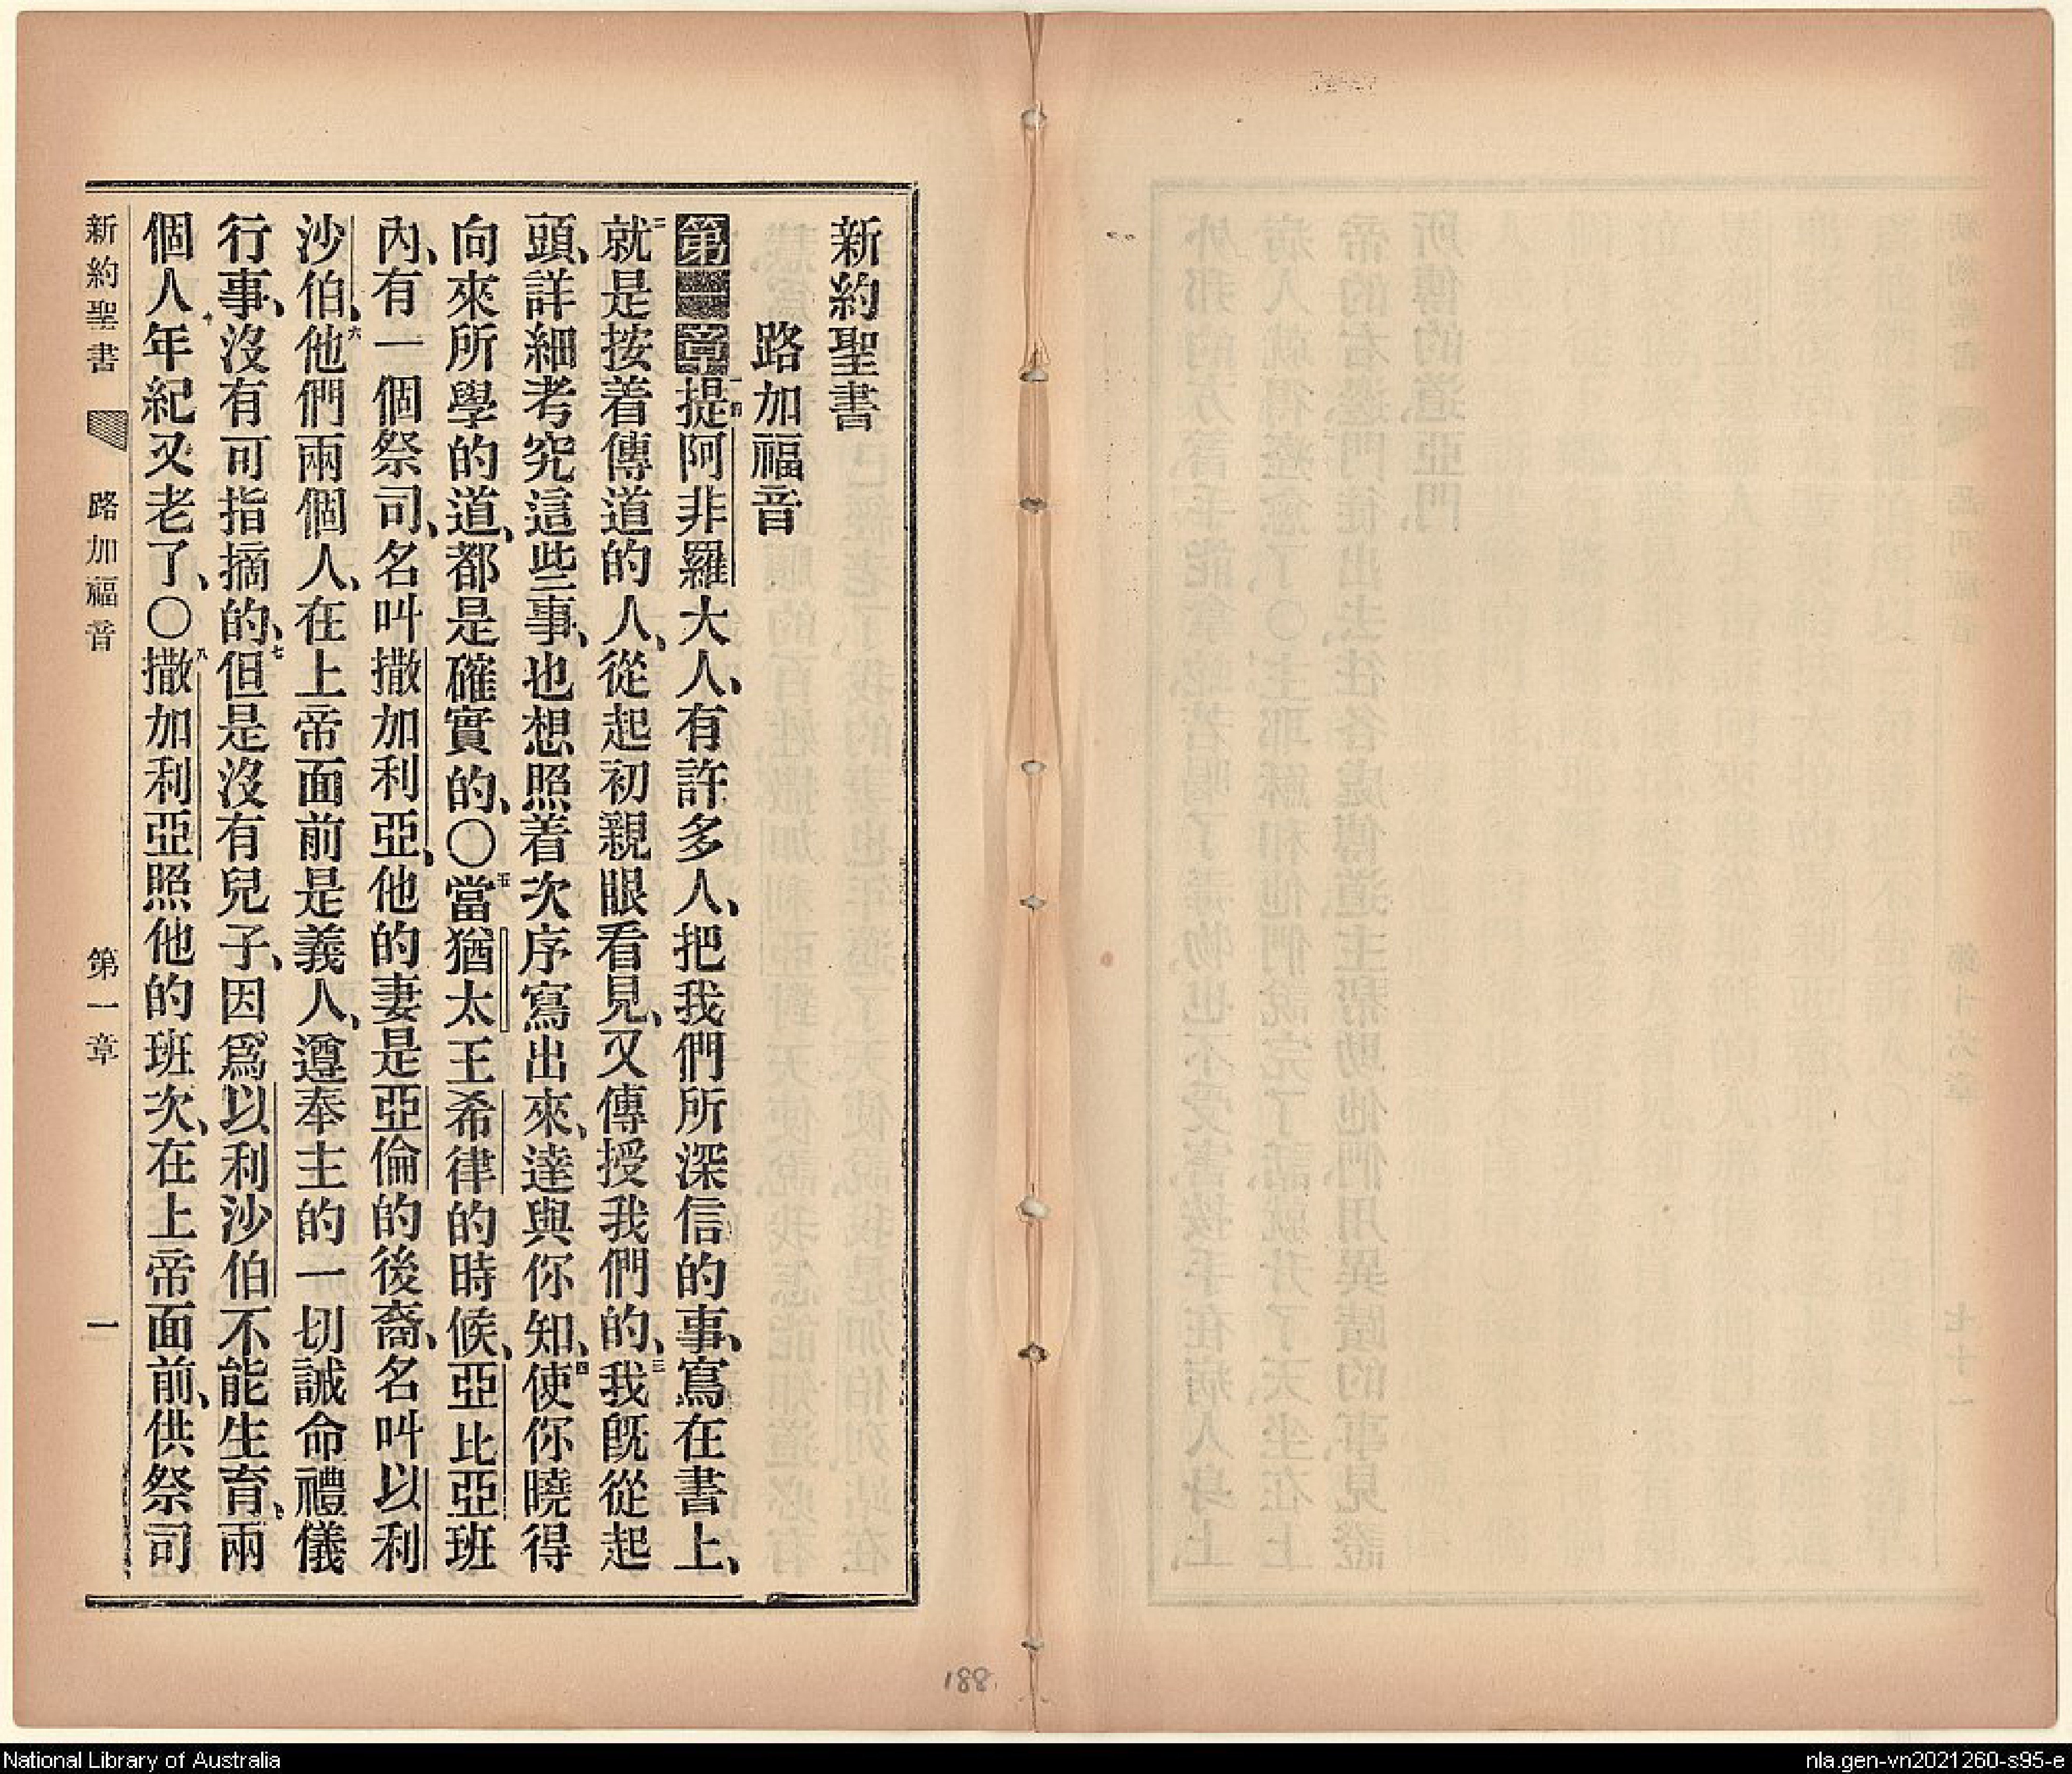 新約聖書
路加福音
第一章一提阿非羅大人、有許多人、把我們所深信的事、寫在書上、
二就是按着傳道的人、從起初親眼看見、又傳授我們的、三我旣從起
頭、詳細考究這些事、也想照着次序寫出來、達與你知、四使你曉得
向來所學的道、都是確實的、〇五當猶太王希律的時候、亞比亞班
內、有一個祭司、名叫撒加利亞、他的妻是亞倫的後裔、名叫以利
沙伯、六他們兩個人、在上帝面前是義人、遵奉主的一切誡命禮儀
行事、沒有可指摘的、七但是沒有兒子、因爲以利沙伯不能生育、兩
個人年紀又老了、〇八撒加利亞照他的班次、在上帝面前、供祭司
新約聖書 路加福音 第一章 一
188
National Library of Australia
nla.gen-vn2021260-s95-e